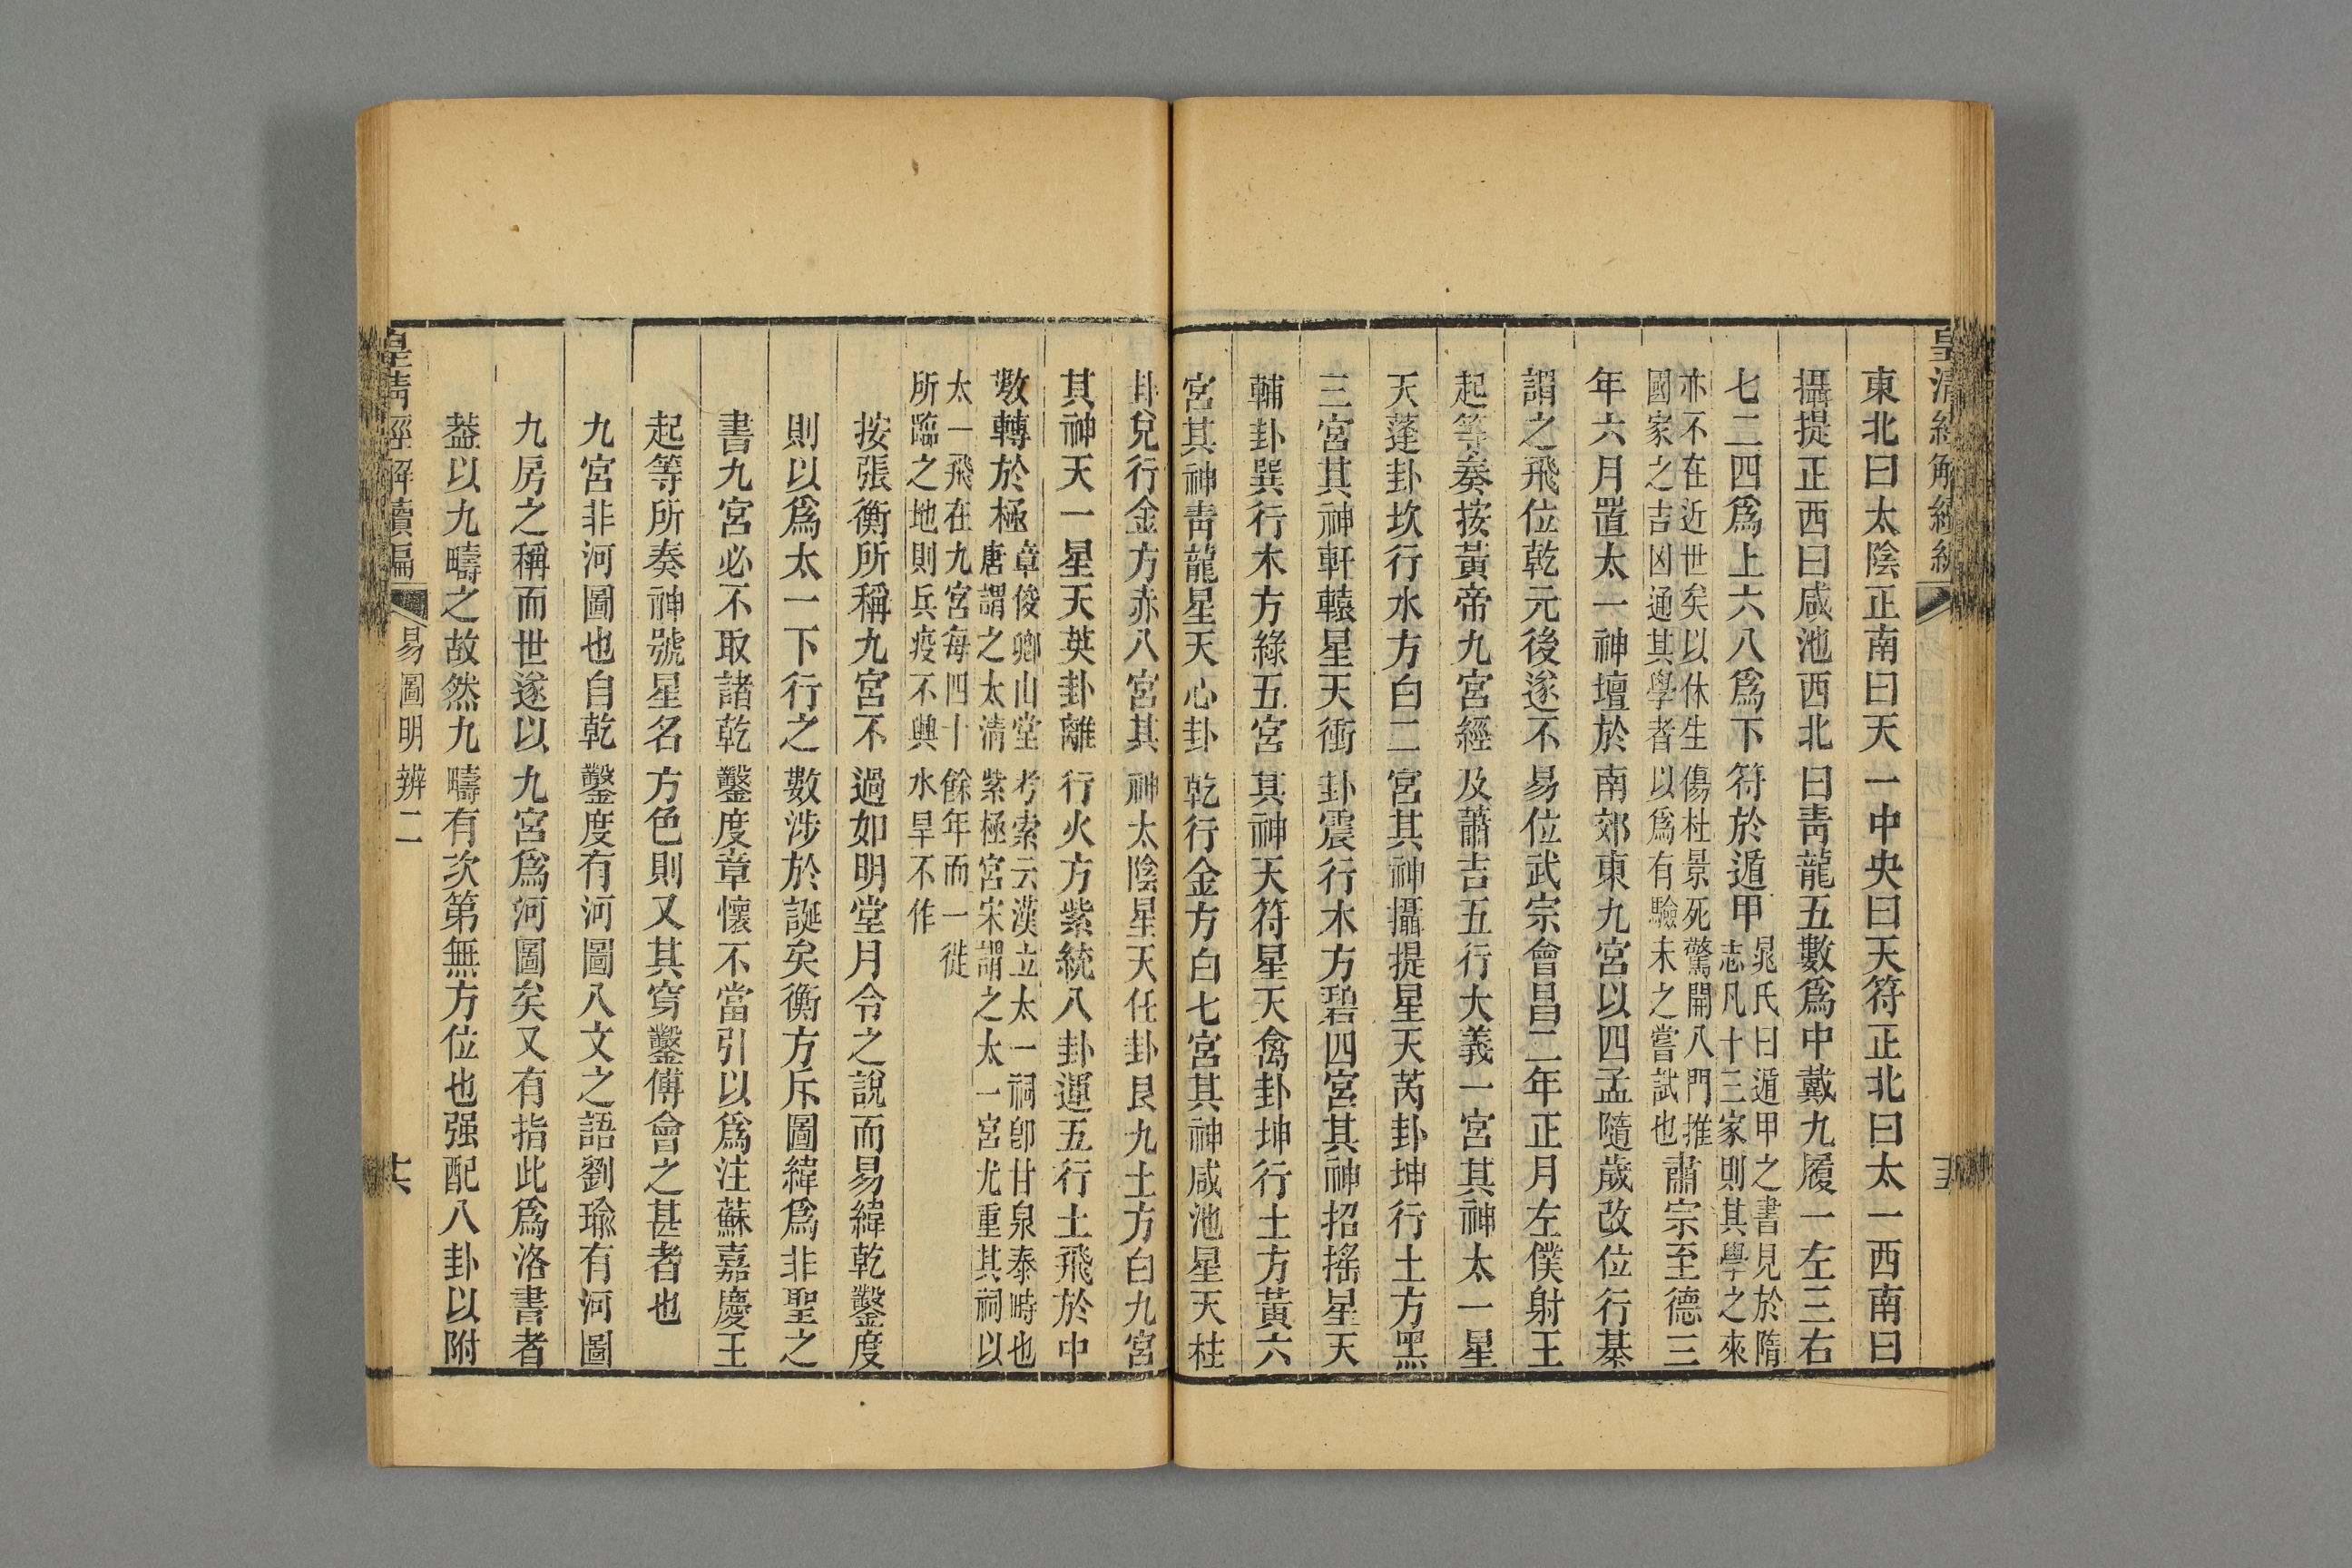 皇清經解續編
東北曰太陰正南曰天一中央曰天符正北曰太一西南曰
攝提正西曰咸池西北曰青龍五數爲中戴九履一左三右
七二四爲上六八爲下符於遁甲晁氏曰遁甲之書見於隋
志凡十三家則其學之來
亦不在近世矣以休生傷杜景死驚開八門推
國家之吉凶通其學者以爲有驗未之嘗試也肅宗至德三
年六月置太一神壇於南郊東九宮以四孟隨歲改位行棊
謂之飛位乾元後遂不易位武宗會昌二年正月左僕射王
起等奏按黃帝九宮經及蕭吉五行大義一宮其神太一星
天蓬卦坎行水方白二宮其神攝提星天芮卦坤行土方黑
三宮其神軒轅星天衝卦震行木方碧四宮其神招搖星天
輔卦巽行木方綠五宮其神天符星天禽卦坤行土方黃六
宮其神青龍星天心卦乾行金方白七宮其神咸池星天柱
卦兌行金方赤八宮其神太陰星天任卦艮九土方白九宮
其神天一星天英卦離行火方紫統八卦運五行土飛於中
數轉於極章俊卿山堂考索云漢立太一祠卽甘泉泰畤也
唐謂之太清紫極宮宋謂之太一宮尤重其祠以
太一飛在九宮每四十餘年而一徙
所臨之地則兵疫不興水旱不作
按張衡所稱九宮不過如明堂月令之說而易緯乾鑿度
則以爲太一下行之數涉於誕矣衡方斥圖緯爲非聖之
書九宮必不取諸乾鑿度章懷不當引以爲注蘇嘉慶王
起等所奏神號星名方色則又其穿鑿傅會之甚者也
九宮非河圖也自乾鑿度有河圖八文之語劉瑜有河圖
九房之稱而世遂以九宮爲河圖矣又有指此爲洛書者
葢以九疇之故然九疇有次第無方位也强配八卦以附
皇清經解續編
易圖明辨二